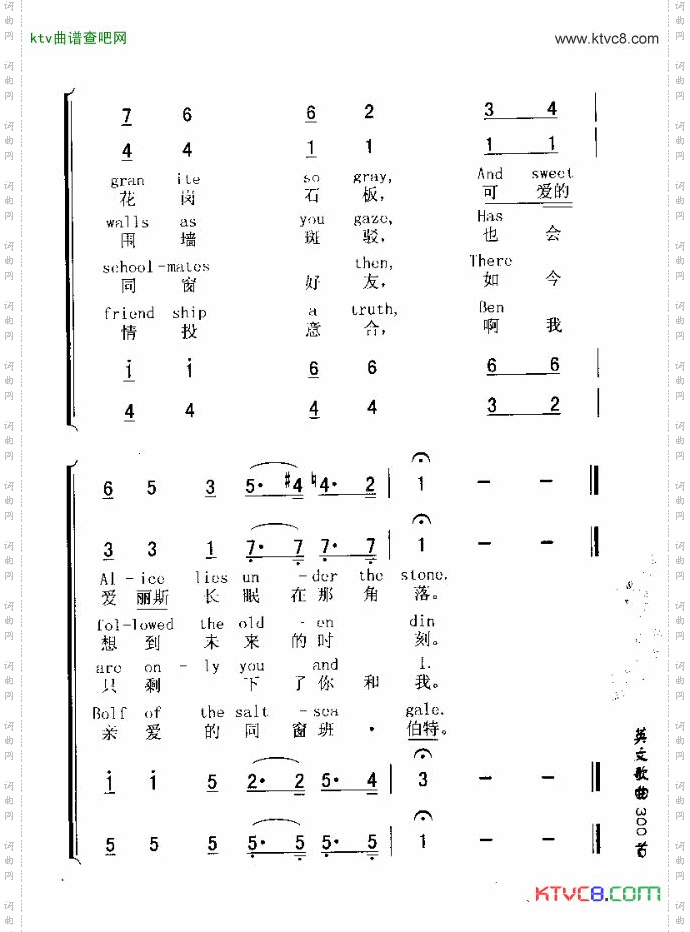 ktv曲谱查吧网 www.ktvc8.com
7 6 6 2 3 4
4 4 1 1 1 1
gran ite so gray, And sweet
花 岗 石 板, 可 爱的
walls as you gaze, Has
围 墙 斑 驳, 也 会
school-mates then, There
同 窗 好 友, 如 今
friend ship a truth, Ben
情 投 意 合, 啊 我
i i 6 6 6 6
4 4 4 4 3 2
6 5 3 5· #4 ♮4· 2 | 1 – –
3 3 1 7· 7 7· 7 | 1 – –
Al-ice lies un -der the stone.
爱 丽斯 长 眠 在 那 角 落。
fol-lowed the old - en din
想 到 未 来 的 时 刻。
are on - ly you and I.
只 剩 下 了 你 和 我。
Bolf of the salt -sea gale.
亲 爱 的 同 窗 班 · 伯特。
i i 5 2· 2 5· 4 | 3 – –
5 5 5 5· 5 5· 5 | 1 – –
英文歌曲300首
KTVC8.COM
词曲网